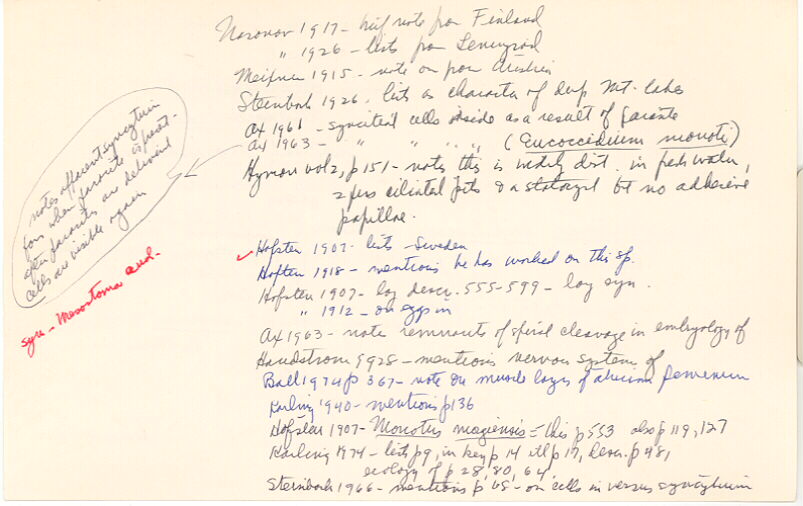 Nasonov 1917 - brief note from Finland
" 1926 - lists from Leningrad
Meixner 1915 - note on from Austria
Steinböck 1926. lists as character of deep Mt. lakes
Ax 1961 - syncitial cells inside as a result of parasite
Ax 1963 - " " " " " (Eucoccidium monoti)
Hyman vol 2, p 151 - notes this is widely dist. in fresh water,
2 prs ciliated pits & a statocyst but no adhesive
papillae.
notes apparent syncytium
when parasite is present -
after parasites are delivered
cells are visible again
syn - Mesostoma aud.
✓ Hofsten 1907 - lists - Sweden
Hofsten 1918 - mentions he has worked on this sp.
Hofsten 1907 - log descr. 555-599 - log syn.
" 1912 - on eggs in
Ax 1963 - note remnants of spiral cleavage in embryology of
9928 - mentions nervous system of
Ball 1974 p 367 - note on muscle layers of
Karling 1940 - mentions p 136
Hofsten 1907 - Monotus magiensis = this p 553 also p 119, 127
Karling 1974 - lists p 9, in key p 14 ill p 17, descr. p 48,
ecology of p 28, 80, 64
Steinböck 1966 - mentions p 65 - on cells in versus syncytium